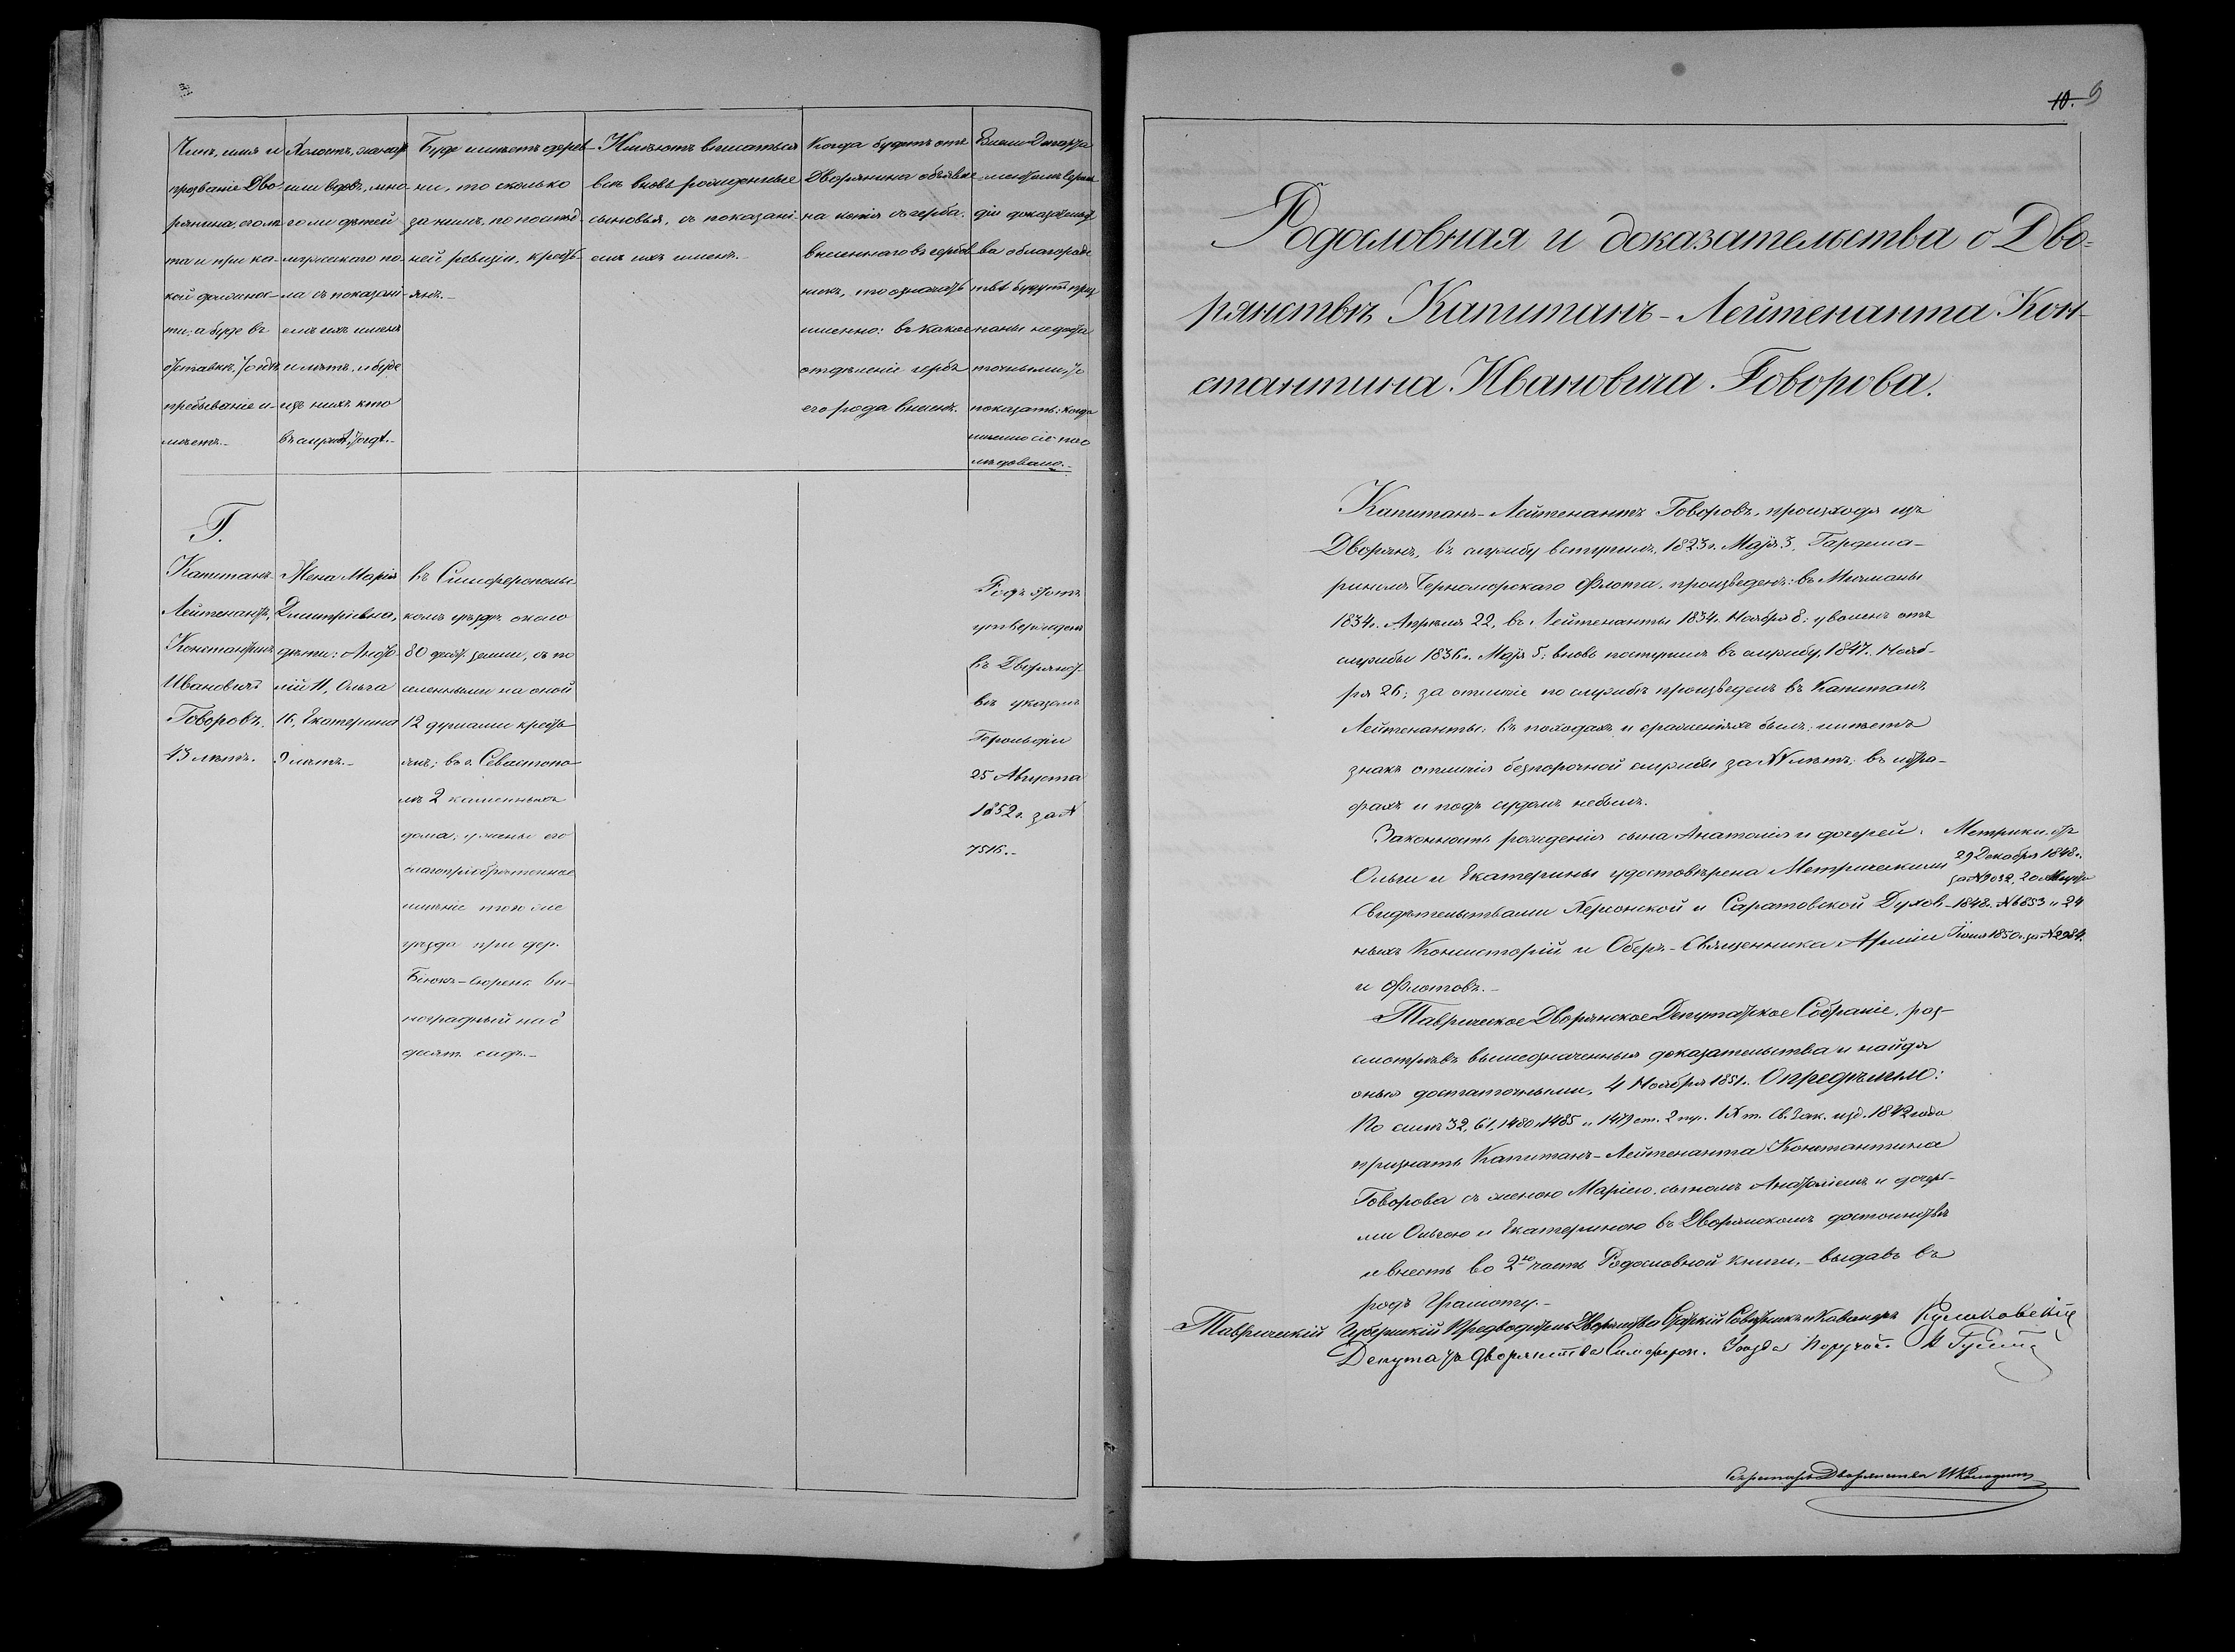 Чинъ, имя и
прозваніе Дво-
рянина, сколь-
ко лѣтъ и при ка-
кой должнос-
ти; а буде въ
отставкѣ, гдѣ
пребываніе и-
мѣетъ.-
Холостъ, женатъ
или вдовъ, мно-
го ли дѣтей
мужескаго по-
ла съ показані-
емъ ихъ именъ
и лѣтъ, и буде
изъ нихъ кто
въ службѣ, гдѣ.-
Буде имѣетъ дерев-
ни, то сколько
за нимъ, по послѣд-
ней ревизіи, кресть-
янъ.-
Имѣютъ вписаться
всѣ вновь рожденные
сыновья, съ показані-
емъ ихъ именъ.-
Когда будетъ отъ
Дворянина объявле-
на копія съ герба,
внесеннаго въ гербов-
никъ, то означать
именно: въ какое
отдѣленіе гербъ
его рода внесенъ.
Герольдіи доказательст-
ва о благородс-
твѣ будутъ приз-
наны недоста-
точными, то
показать: когда
именно сіе пос-
лѣдовало.-
Г.
Капитанъ-
Лейтенантъ,
Константинъ
Ивановичъ
Говоровъ.
43 лѣтъ.
Жена Марія
Дмитріевна,
дѣти: Анато-
лій 11, Ольга
16, Екатерина
9 лѣтъ.-
въ Симферополь-
комъ уѣздѣ около
80 десят. земли, съ по
селенными на оной
12 душами кресть-
янъ; въ г. Севастопо-
лѣ 2 каменныхъ
дома; у жены его
благопріобрѣтенное
имѣніе того же
уѣзда при дер.
Біюкъ-сюрень ви-
ноградный на
десят. садъ.-
Родъ этотъ
утвержденъ
въ Дворянст-
вѣ указомъ
Герольдіи
25 Августа
1852 г. за №
7516.-
10. 9
Родословная и доказательства о Дво-
рянствѣ Капитанъ-Лейтенанта Кон-
стантина Ивановича Говорова.
Капитанъ-Лейтенантъ Говоровъ, происходя изъ
Дворянъ, въ службу вступилъ 1823 г. Маія 3, Гардема-
риномъ Черноморскаго Флота, произведенъ: въ Мичманы
1834 г. Апрѣля 22, въ Лейтенанты 1834 г. Ноября 8; уволенъ отъ
службы 1836 г. Маія 5; вновь поступилъ въ службу 1847 г. Нояб-
ря 26; за отличіе по службѣ произведенъ въ Капитанъ
Лейтенанты: въ походахъ и сраженіяхъ былъ; имѣетъ
знакъ отличія безпорочной службы за XV лѣтъ; въ штра-
фахъ и подъ судомъ не былъ.
Законность рожденія сына Анатолія и дочерей:
Ольги и Екатерины удостовѣрена Метрическими
Свидѣтельствами Херсонской и Саратовской Духов-
ныхъ Консисторій и Оберъ-Священника Арміи
и Флотовъ.-
Метрики отъ
29 Декабря 1848 г.
за № 9032, 20 Марта
1848 г. № 6853 и 24
Іюня 1850 г. за № 2984.
Таврическое Дворянское Депутатское Собраніе, раз-
смотрѣвъ вышеозначенныя доказательства и найдя
оныя достаточными, 4 Ноября 1851 г. Опредѣлило:
По силѣ 32, 61, 1480, 1485 и 1419 ст. 2 пун. IX т. Св. Зак. изд. 1842 года
признать Капитанъ-Лейтенанта Константина
Говорова съ женою Маріею, сыномъ Анатоліемъ и дочерь-
ми Ольгою и Екатериною въ Дворянскомъ достоинствѣ
и внесть во 2ю часть Родословной книги, выдавъ въ
родъ Грамоту.-
Таврическій Губернскій Предводитель Дворянства Статскій Совѣтникъ и Кавалеръ
Депутатъ Дворянства Симфероп. Уѣзда Поруч.
Секретарь Дворянства